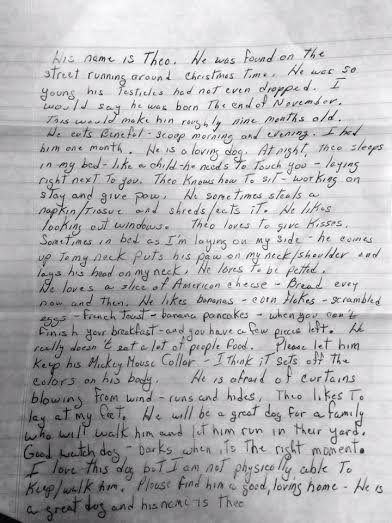 His name is Theo. He was found on the
street running around Christmas Time. He was so
young his Testicles had not even dropped. I
would say he was born The end of November.
This would make him roughly nine months old.
He eats Beneful - scoop morning and evening. I had
him one month. He is a loving dog. At night, Theo sleeps
in my bed - like a child - he needs to touch you - laying
right next To you. Theo Knows how To sit - working on
stay and give paw. He sometimes steals a
napkin/Tissue and shreds/eats it. He likes
looking out windows. Theo loves to give Kisses.
Sometimes in bed as I'm laying on my side - he comes
up To my neck puts his paw on my neck/shoulder and
lays his head on my neck. He loves To be petted.
He loves a slice of American cheese - Bread every
now and Then. He likes bananas - corn flakes - scrambled
eggs - French Toast - banana pancakes - when you can't
finish your breakfast - and you have a few pieces left. He
really doesn't eat a lot of people food. Please let him
Keep his Mickey Mouse Collar - I think it sets off the
colors on his body. He is afraid of curtains
blowing from wind - runs and hides. Theo likes To
lay at my feet. He will be a great dog for a family
who will walk him and let him run in their yard.
Good watch dog - barks when its the right moment.
I love this dog but I am not physically able To
Keep/walk him. Please find him a good, loving home - He is
a great dog and his name is Theo